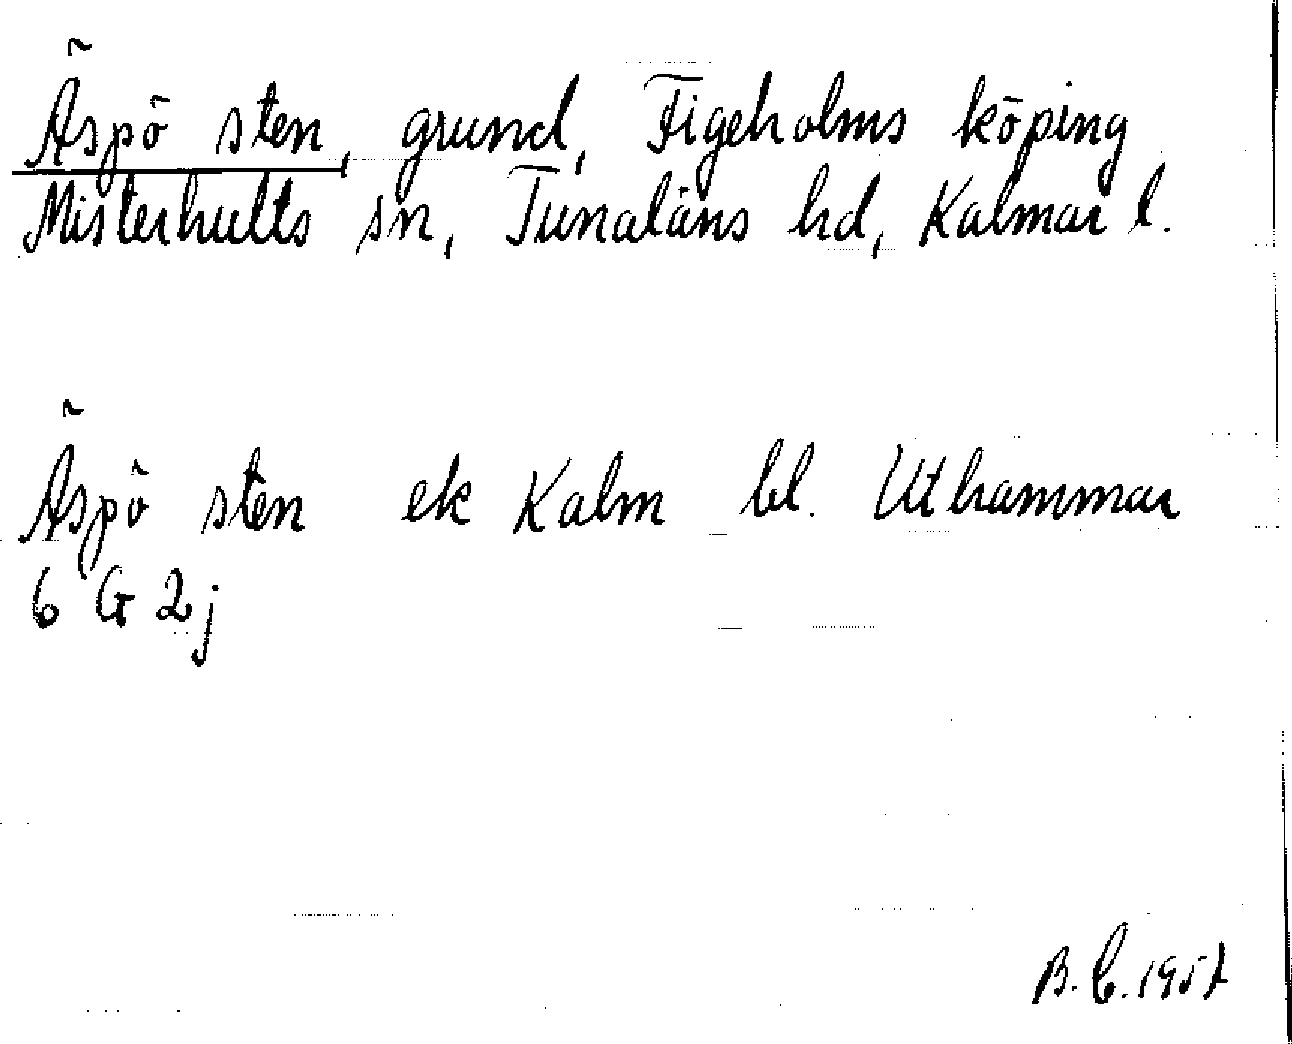 Äspö sten, grund, Figeholms köping
Misterhults sn, Tunaläns hd, Kalmar l.
Äspö sten ek Kalm bl. Uthammar
6 G 2j
B. C. 1957